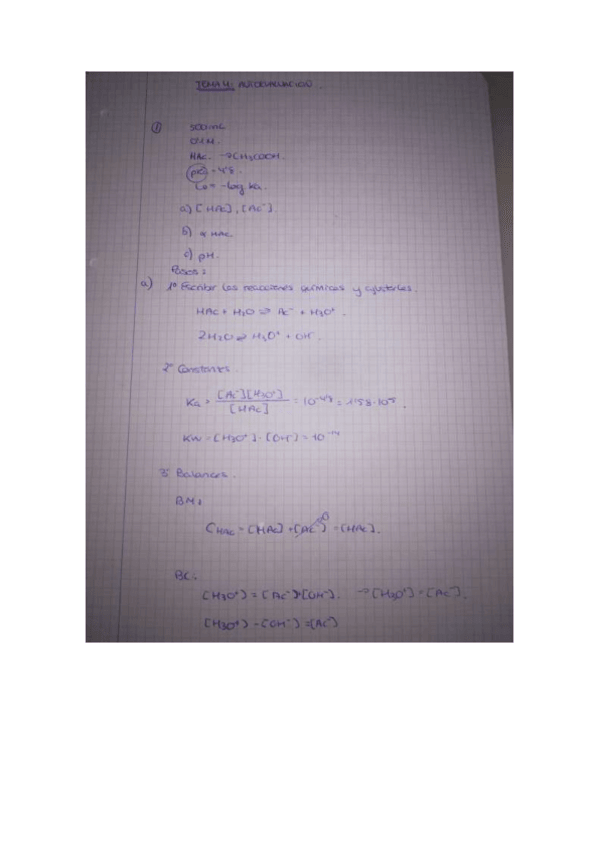 TEMA 4: AUTOEVALUACIÓN.
① 500mL
0'1M.
HAc. → CH3COOH.
pKa = 4'8.
= -log Ka.
a) [HAc], [Ac⁻].
b) α HAc
c) pH.
Pasos:
a) 1º Escribir las reacciones químicas y ajustarlas.
HAc + H2O ⇌ Ac⁻ + H3O⁺.
2H2O ⇌ H3O⁺ + OH⁻.
2º Constantes.
Ka = [Ac⁻][H3O⁺] / [HAc] = 10^-4'8 = 1'58·10^-5.
KW = [H3O⁺]·[OH⁻] = 10^-14
3º Balances.
BM:
CHAc = [HAc] + [Ac⁻] = [HAc].
BC:
[H3O⁺] = [Ac⁻]+[OH⁻]. → [H3O⁺] = [Ac⁻].
[H3O⁺] - [OH⁻] = [Ac⁻]